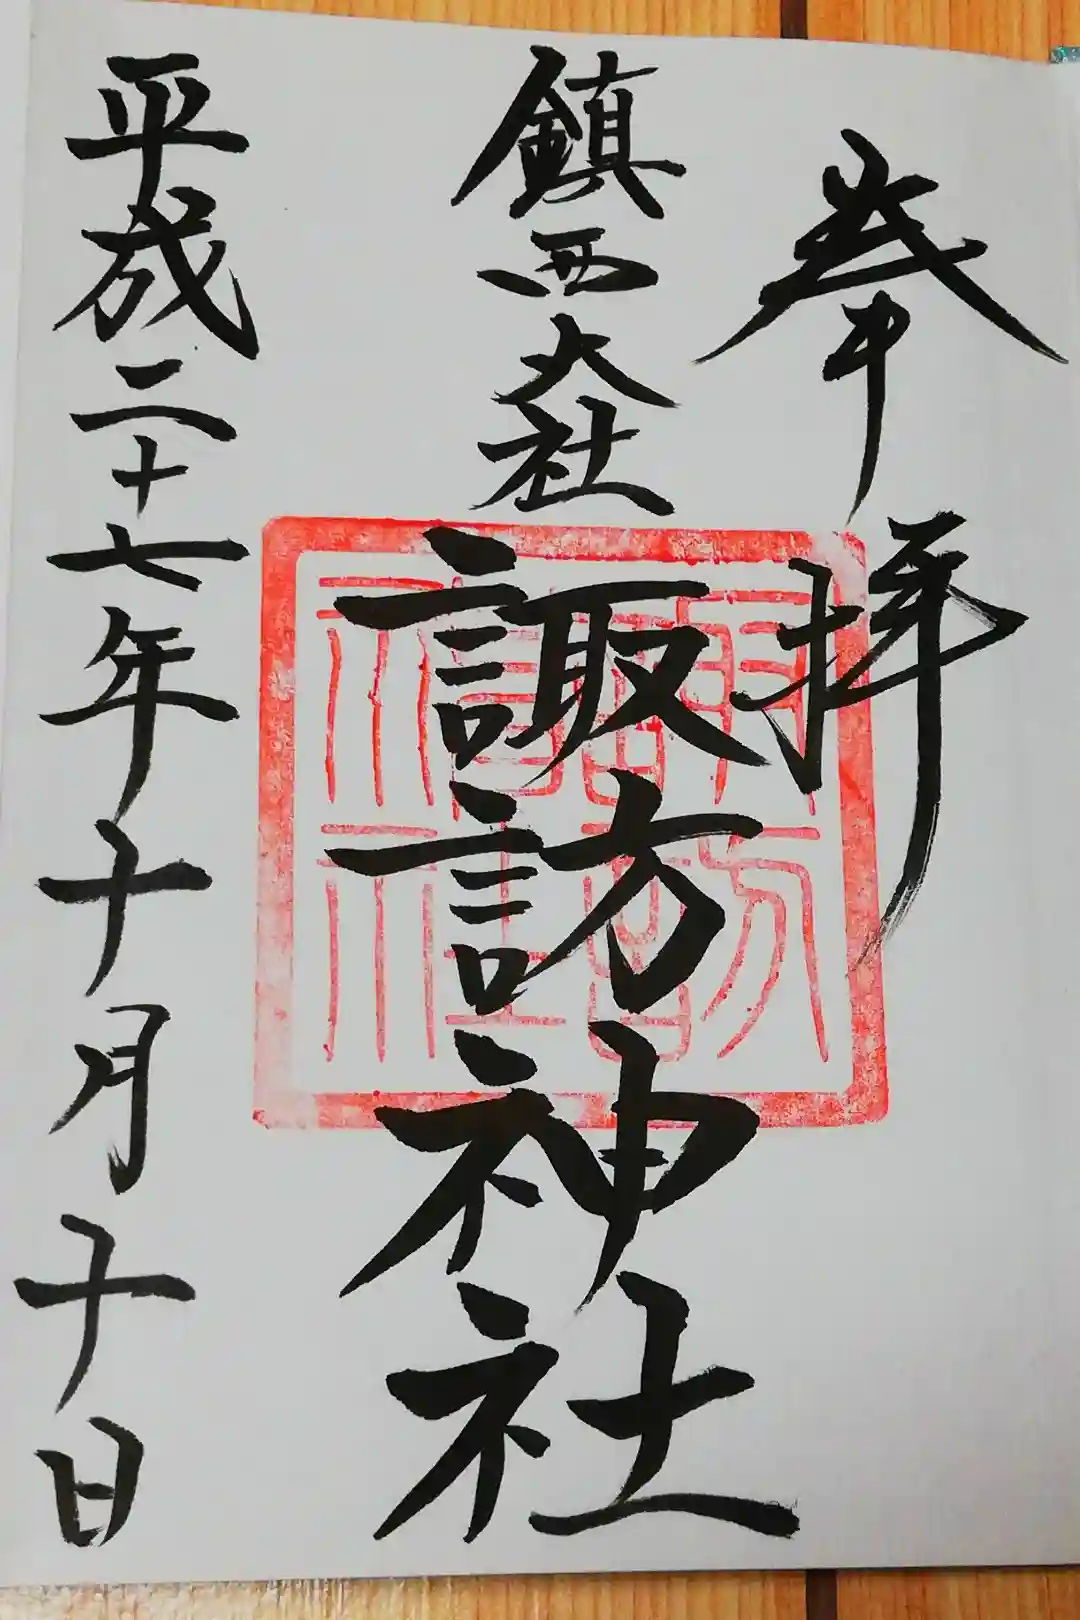 奉拝
鎮西大社
諏訪神社
平成二十七年十月十日